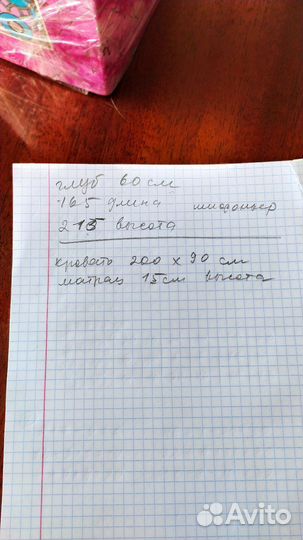 глуб 60 см
165 длина шифоньер
215 высота
кровать 200 х 90 см
матрац 15 см высота
Avito